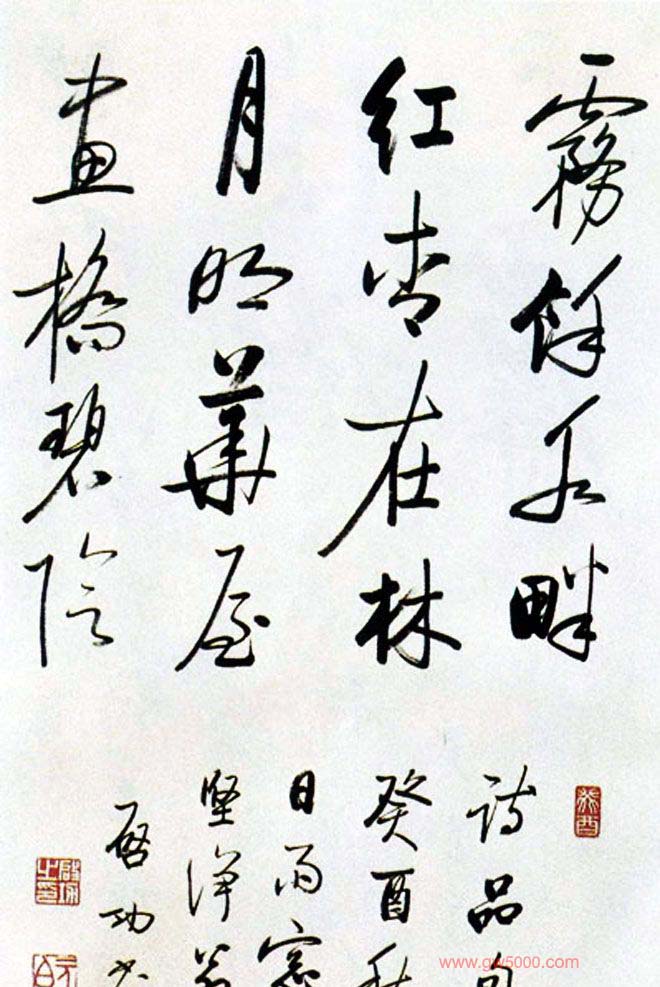 霧餘水畔
紅杏在林
月明華屋
畫橋碧陰
癸酉
詩品句
癸酉秋
日雨窗
堅淨翁
啓功書
www.gw5000.com